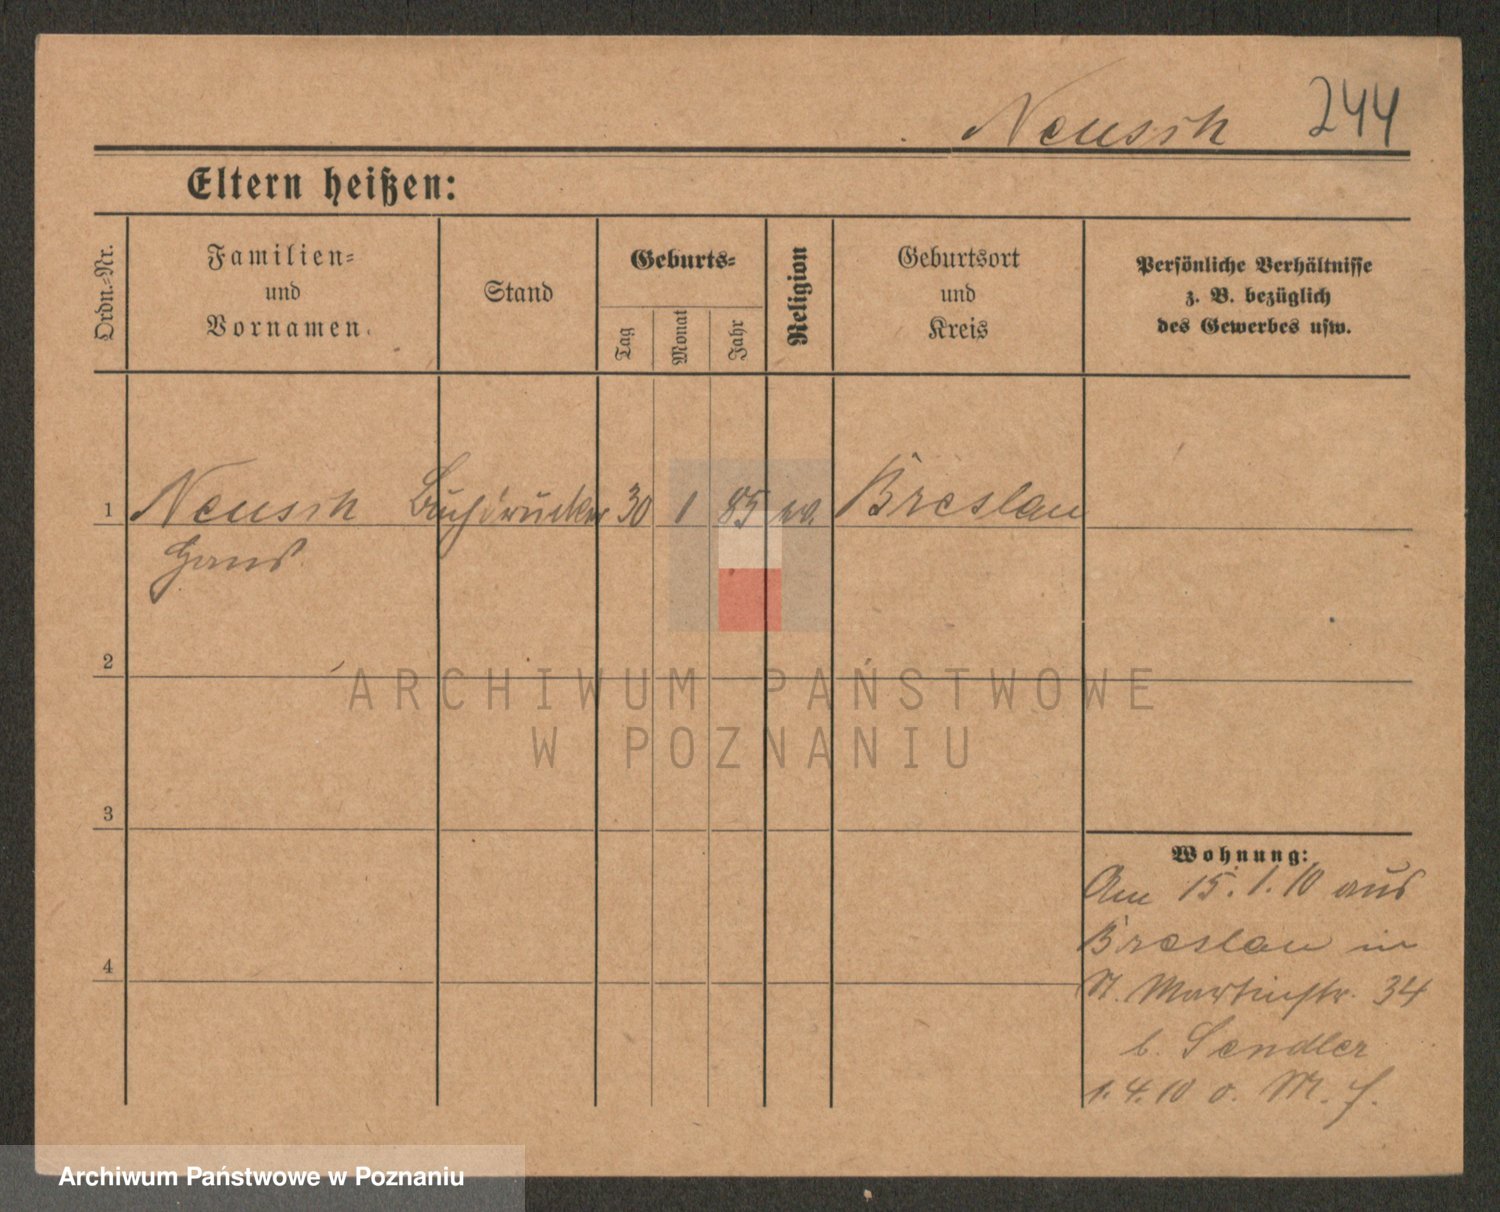 Neusch 244
Eltern heißen:
Ordn.-Nr.
Familien-
und
Vornamen.
Stand
Geburts-
Tag
Monat
Jahr
Religion
Geburtsort
und
Kreis
Persönliche Verhältnisse
z. B. bezüglich
des Gewerbes usw.
1 Neusch Buchdrucker 30 1 85 ev. Breslau
Hans
2
3
4
Wohnung:
Am 15.1.10 aus
Breslau in
St. Martinstr. 34
b. Sendler
1.4.10 o.
ARCHIWUM PAŃSTWOWE
W POZNANIU
Archiwum Państwowe w Poznaniu